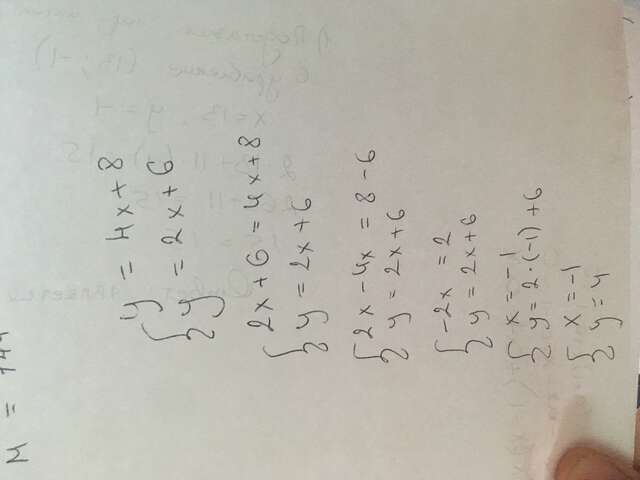 y = 4x+8
y = 2x+6
2x+6 = 4x+8
y = 2x+6
2x-4x = 8-6
y = 2x+6
-2x = 2
y = 2x+6
x = -1
y = 2·(-1)+6
x = -1
y = 4